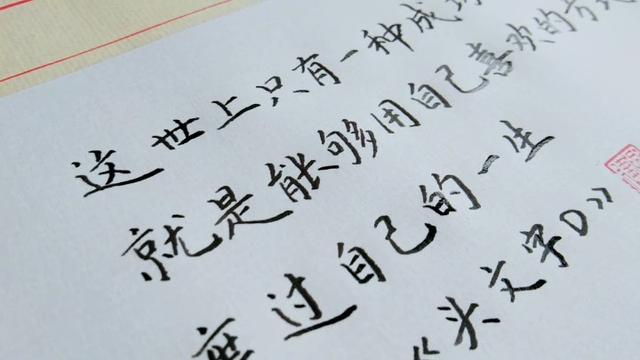 这世上只有一种成
就是能够用自己喜欢的方式
度过自己的一生
《头文字D》